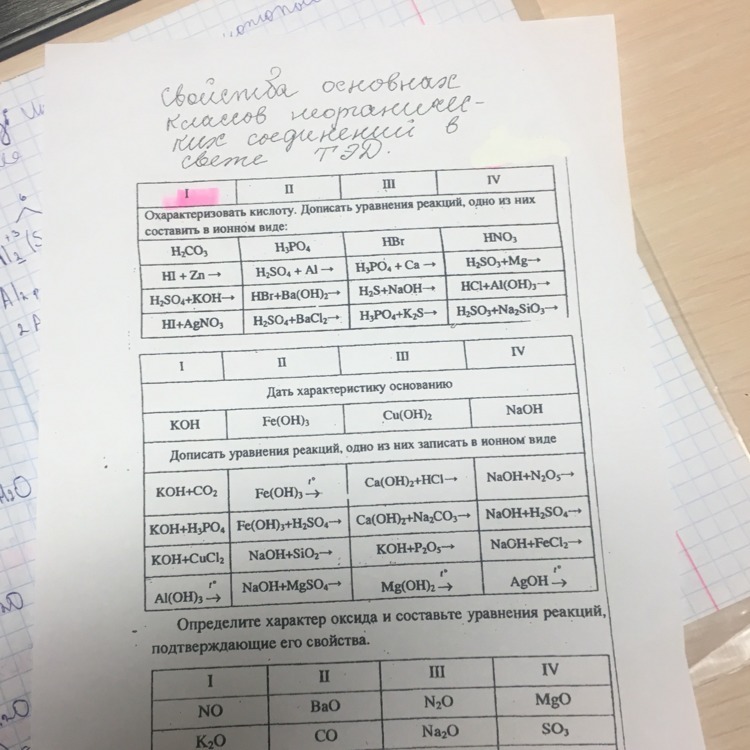 Свойства основных
классов неорганичес-
ких соединений в
свете ТЭД.
I II III IV
Охарактеризовать кислоту. Дописать уравнения реакций, одно из них
составить в ионном виде:
H₂CO₃ H₃PO₄ HBr HNO₃
HI + Zn→ H₂SO₄ + Al→ H₃PO₄ + Ca→ H₂SO₃+Mg→
H₂SO₄+KOH→ HBr+Ba(OH)₂→ H₂S+NaOH→ HCl+Al(OH)₃→
HI+AgNO₃ H₂SO₄+BaCl₂→ H₃PO₄+K₂S→ H₂SO₃+Na₂SiO₃→
I II III IV
Дать характеристику основанию
KOH Fe(OH)₃ Cu(OH)₂ NaOH
Дописать уравнения реакций, одно из них записать в ионном виде
KOH+CO₂ Fe(OH)₃ t°→ Ca(OH)₂+HCl→ NaOH+N₂O₅→
KOH+H₃PO₄ Fe(OH)₃+H₂SO₄→ Ca(OH)₂+Na₂CO₃→ NaOH+H₂SO₄→
KOH+CuCl₂ NaOH+SiO₂→ KOH+P₂O₅→ NaOH+FeCl₂→
Al(OH)₃ t°→ NaOH+MgSO₄→ Mg(OH)₂ t°→ AgOH t°→
Определите характер оксида и составьте уравнения реакций,
подтверждающие его свойства.
I II III IV
NO BaO N₂O MgO
K₂O CO Na₂O SO₃